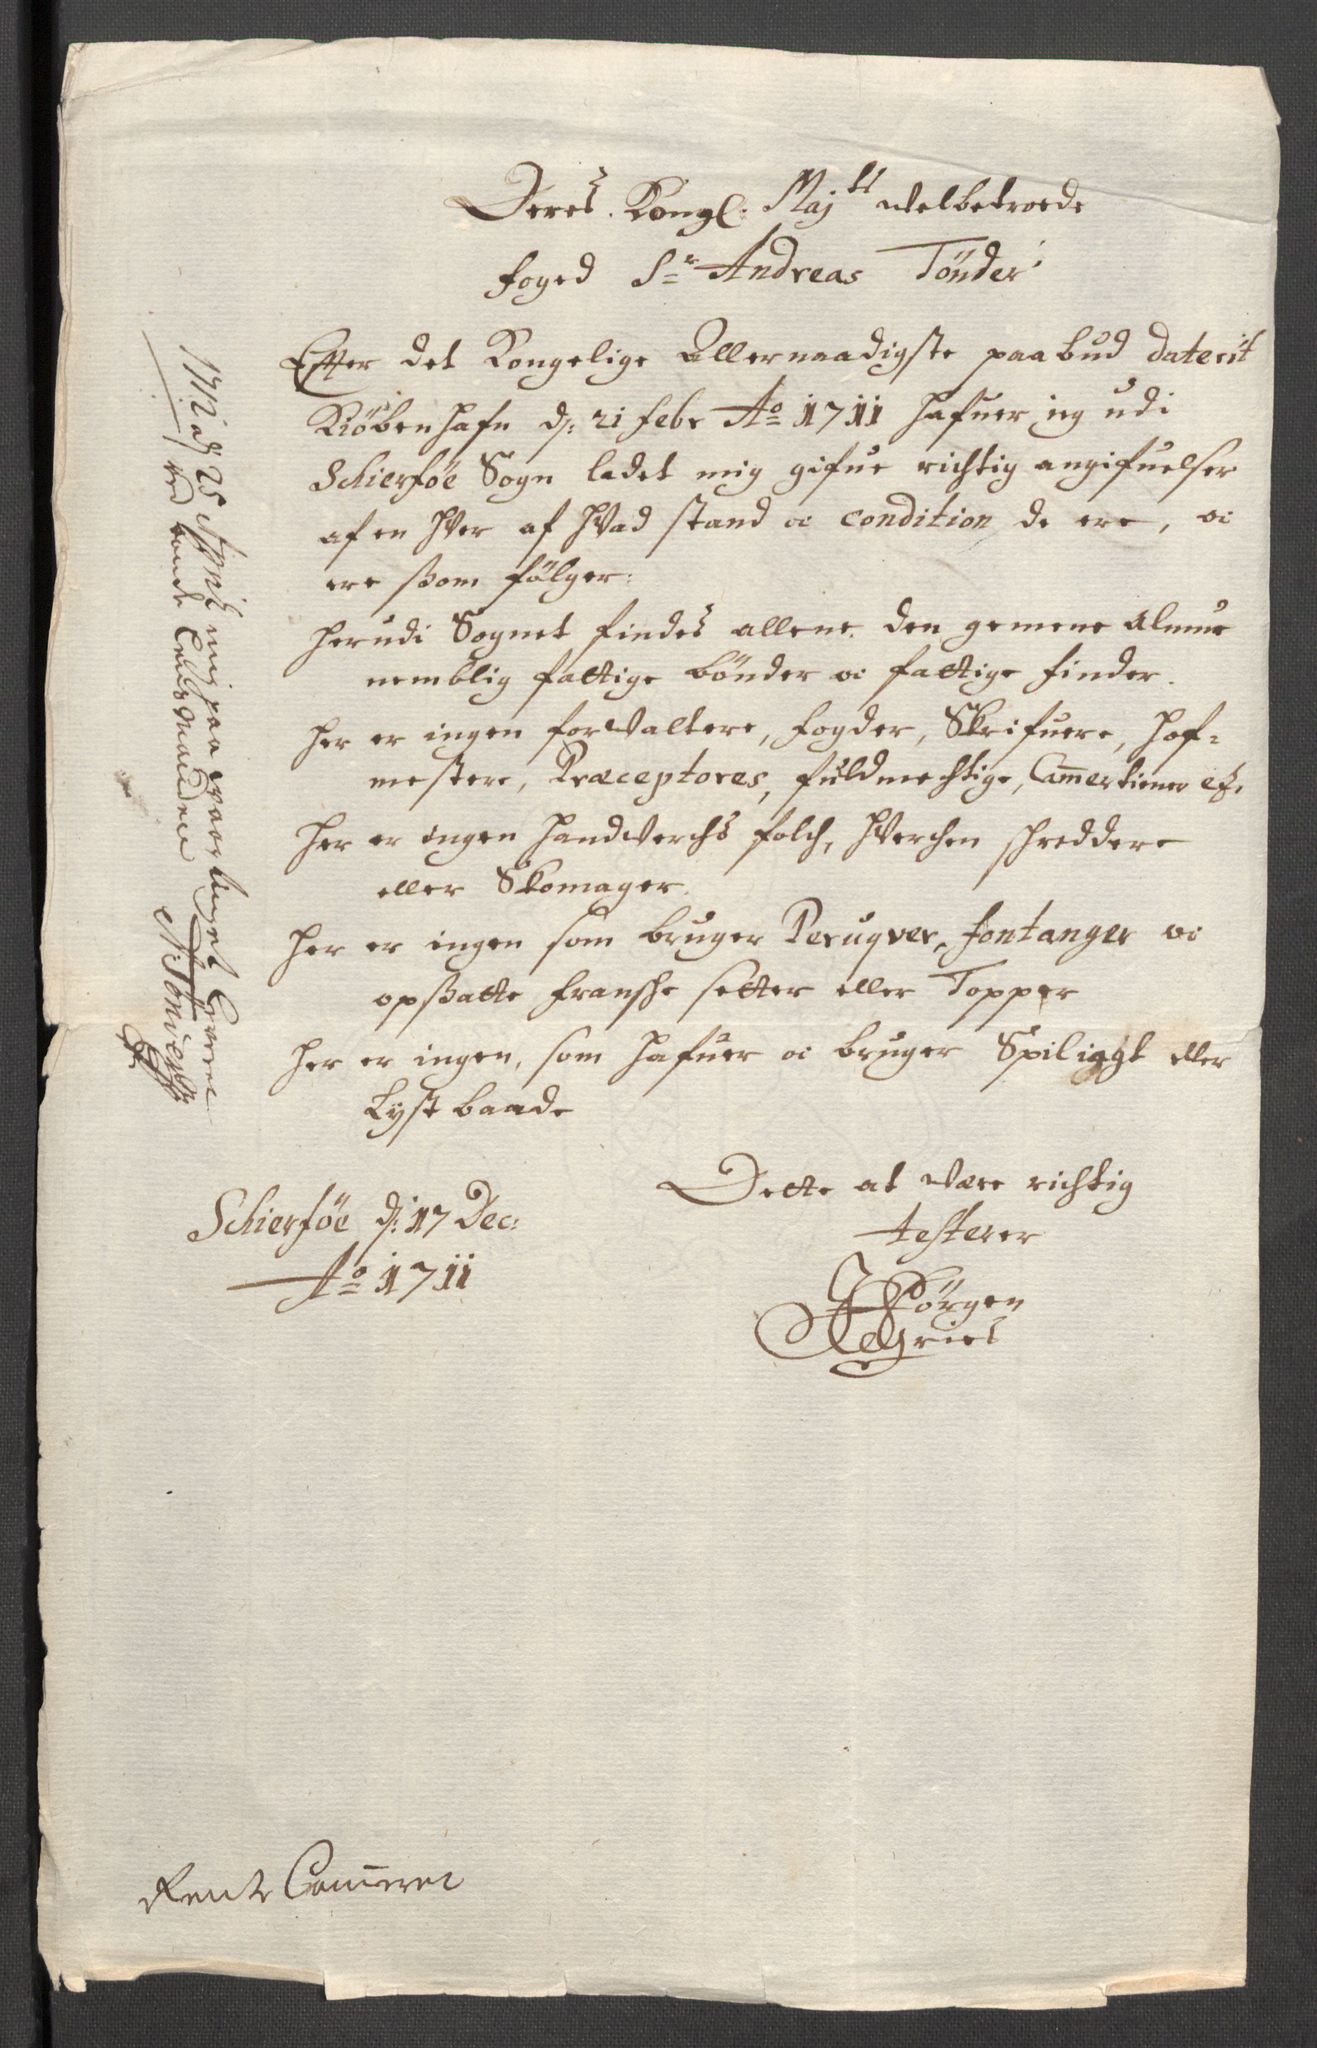 Deres. Kongl: Maj<sup>tt</sup> velbetroede
foged S<sup>r</sup> Andreas Tönder
Effter det Kongelige Allernaadigste paabud daterit
Kiöbenhafn d: 21 febr A<sup>o</sup> 1711 hafuer ieg udi
Schierföe Sogn ladet mig gifue richtig angifuelser
af en hver af hvad stand oc condition de ere, oc
ere ßom fölger:
herudi Sognet findes allene den gemene almue
nemblig fattige bönder oc fattige finder.
her er ingen forvaltere, fogder, Skrifuere, hof-
mestere, Præceptores, fuldmechtige, Camertiener etc.
her er ingen handverchs folch, hverchen schreddere
eller Skomager.
her er ingen som bruger Peruqver, fontanger oc
opßatte fransche setter eller Topper
her er ingen, som hafuer oc bruger Spiliagt eller
Lyst baade
Dette at være richtig
testerer
Jörgen
Gries
Schierföe d: 17 Dec:
A<sup>o</sup> 1711
1712 d 25 mig paa
ved bonde Lensmanden
Rente Cammeret